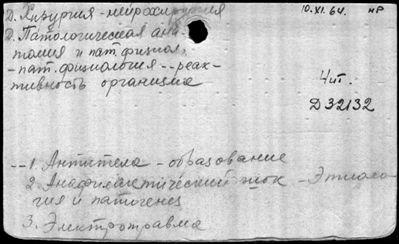 Д. Хирургия - нейрохирургия
10.XI.64. нР
Д. Патологическая ана-
томия и пат. физиол.
- пат. физиология -- реак-
тивность организма
Чит.
Д32132
-- 1. Антитела - образование
2. Анафилактический шок - Этиоло-
гия и патогенез
3. Электротравма